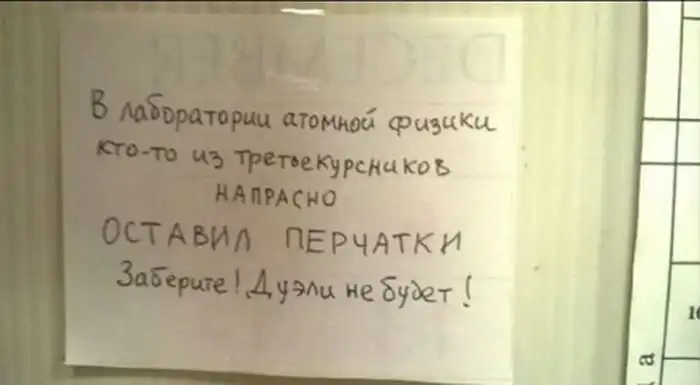 DECEMBER
В лаборатории атомной физики
кто-то из третьекурсников
НАПРАСНО
ОСТАВИЛ ПЕРЧАТКИ
Заберите! Дуэли не будет!
а